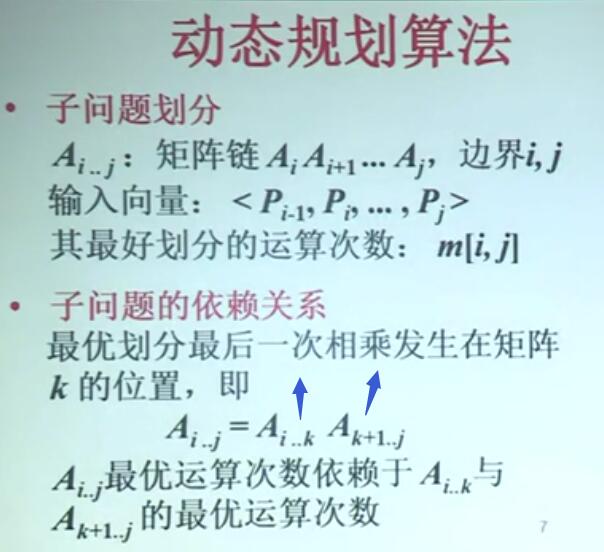 动态规划算法
• 子问题划分
A i . . j：矩阵链 A i A i+1 ... A j，边界i, j
输入向量：< P i-1, P i, ... , P j >
其最好划分的运算次数： m[i, j]
• 子问题的依赖关系
最优划分最后一次相乘发生在矩阵
k 的位置，即
A i ..j = A i ..k A k+1..j
A i..j最优运算次数依赖于 A i..k与
A k+1..j 的最优运算次数
7